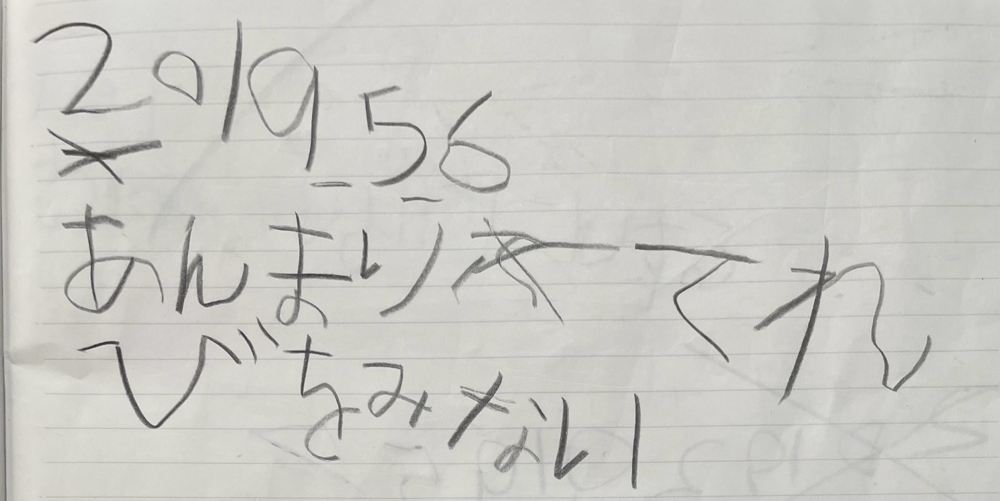 2019.5.6
あんまりてれ
びをみない